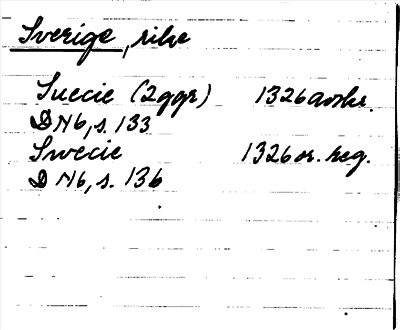 Sverige, rike
Suecie (2 ggr) 1326 avskr.
DN 6, s. 133
Swecie 1326 or. reg.
DN 6, s. 136